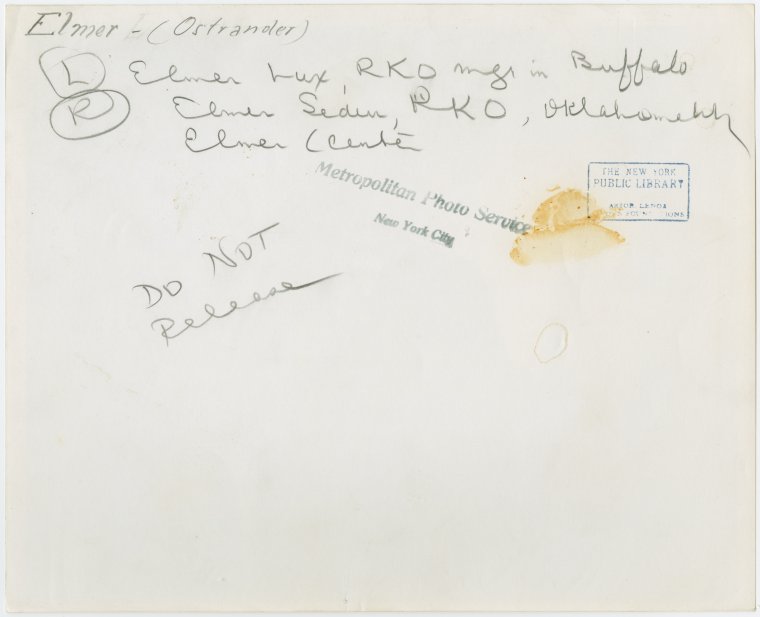 Elmer - (Ostrander)
L Elmer Lux, RKO mgr in Buffalo
R Elmer Sedin, RKO, Oklahoma
Elmer (center
Metropolitan Photo Service
New York City
THE NEW YORK
PUBLIC LIBRARY
ASTOR LENOX
FOUNDATIONS
DO NOT
Release